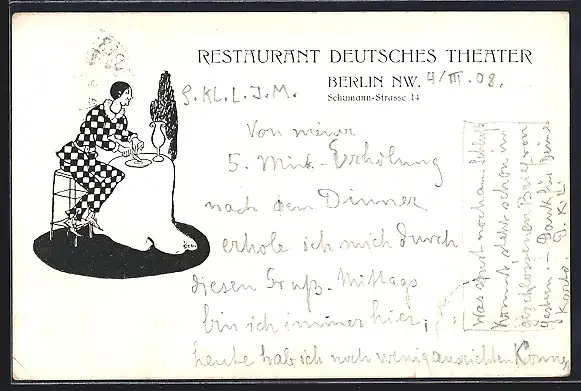 RESTAURANT DEUTSCHES THEATER
BERLIN NW. 4/III.08.
Schumann-Strasse 14
S. KL. L. J. M.
Von meiner
5. Mint.-Erhölung
nach dem Dinner
erhole ich mich durch
diesen Gruß. Mittags
bin ich immer hier;
heute hab ich noch wenig ausrichten Könne
Was sonst noch am
Kommt, steht schon im
geschlossenen Brief von
gestern. - Dank für Deine
Karte. D. K. L.